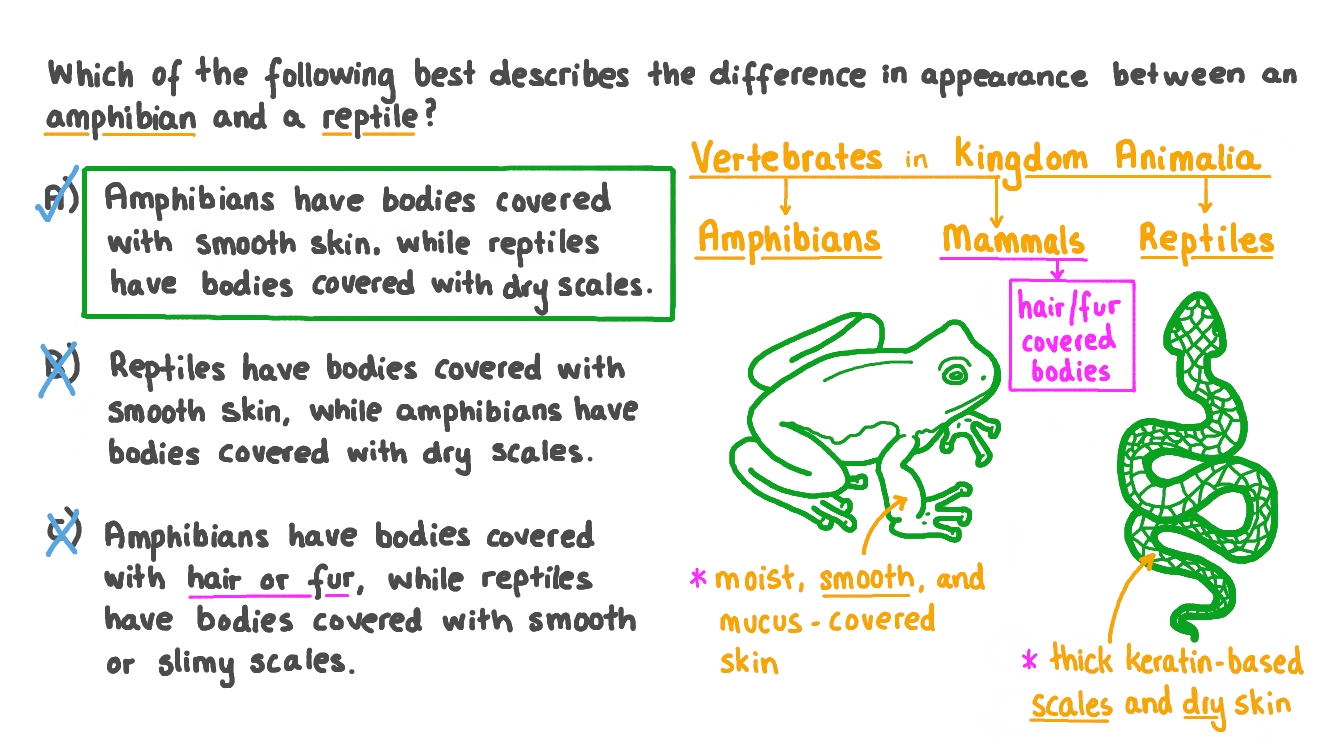 Which of the following best describes the difference in appearance between an
amphibian and a reptile?
A) Amphibians have bodies covered
with smooth skin, while reptiles
have bodies covered with dry scales.
B) Reptiles have bodies covered with
smooth skin, while amphibians have
bodies covered with dry scales.
C) Amphibians have bodies covered
with hair or fur, while reptiles
have bodies covered with smooth
or slimy scales.
Vertebrates in Kingdom Animalia
Amphibians Mammals Reptiles
hair/fur
covered
bodies
* moist, smooth, and
mucus-covered
skin
* thick keratin-based
scales and dry skin